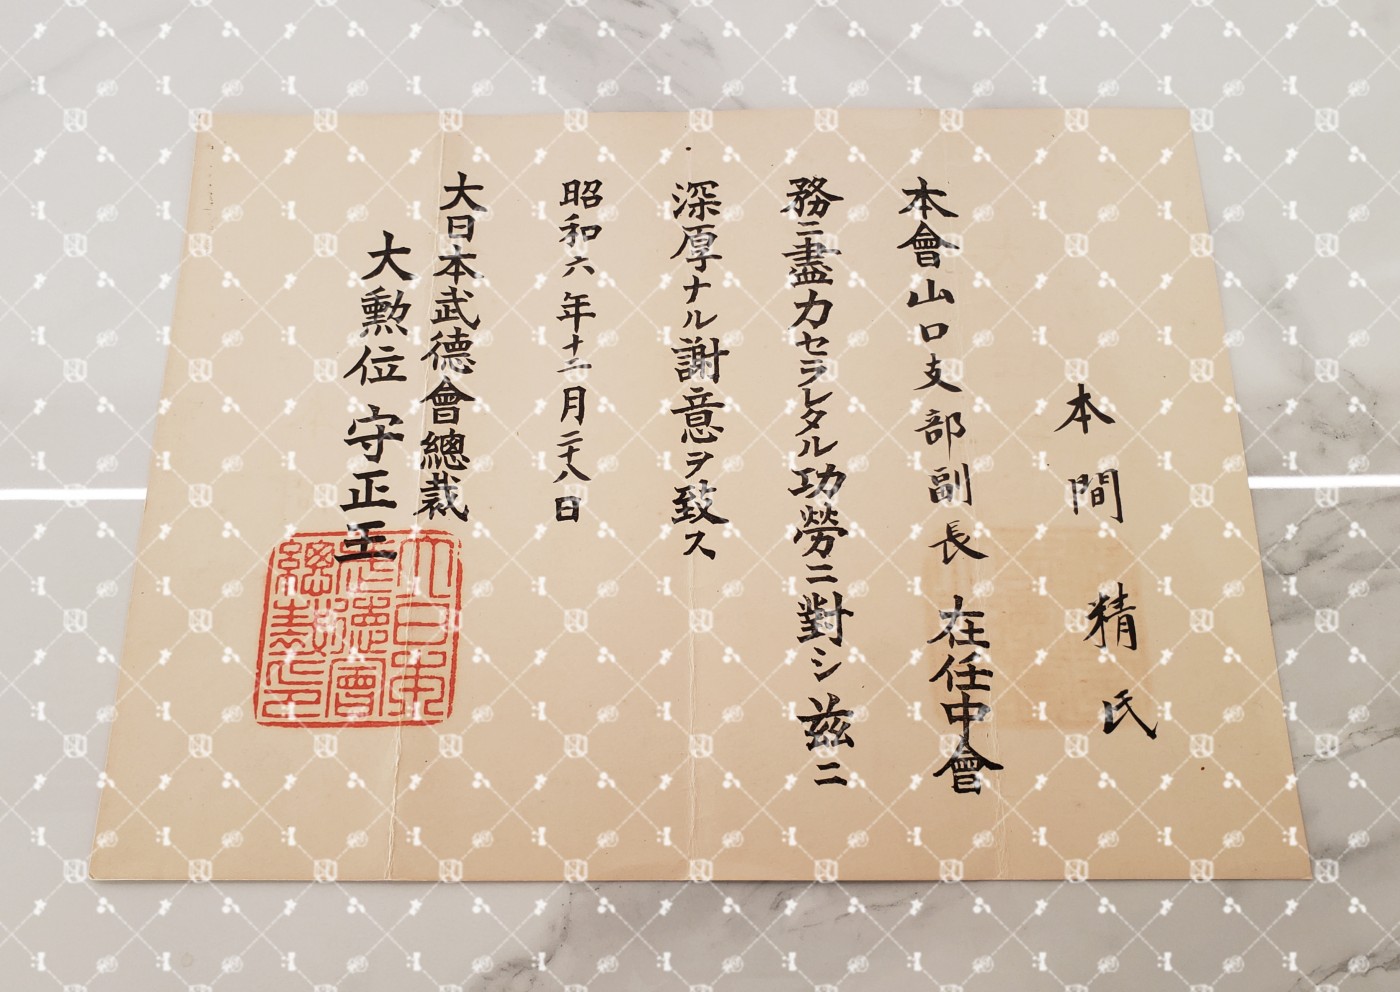 本間精氏
本會山口支部副長在任中會
務ニ盡力セラレタル功勞ニ對シ茲ニ
深厚ナル謝意ヲ致ス
昭和六年十二月二十八日
大日本武德會總裁
大勲位守正王
大日本
武德會
總裁之印